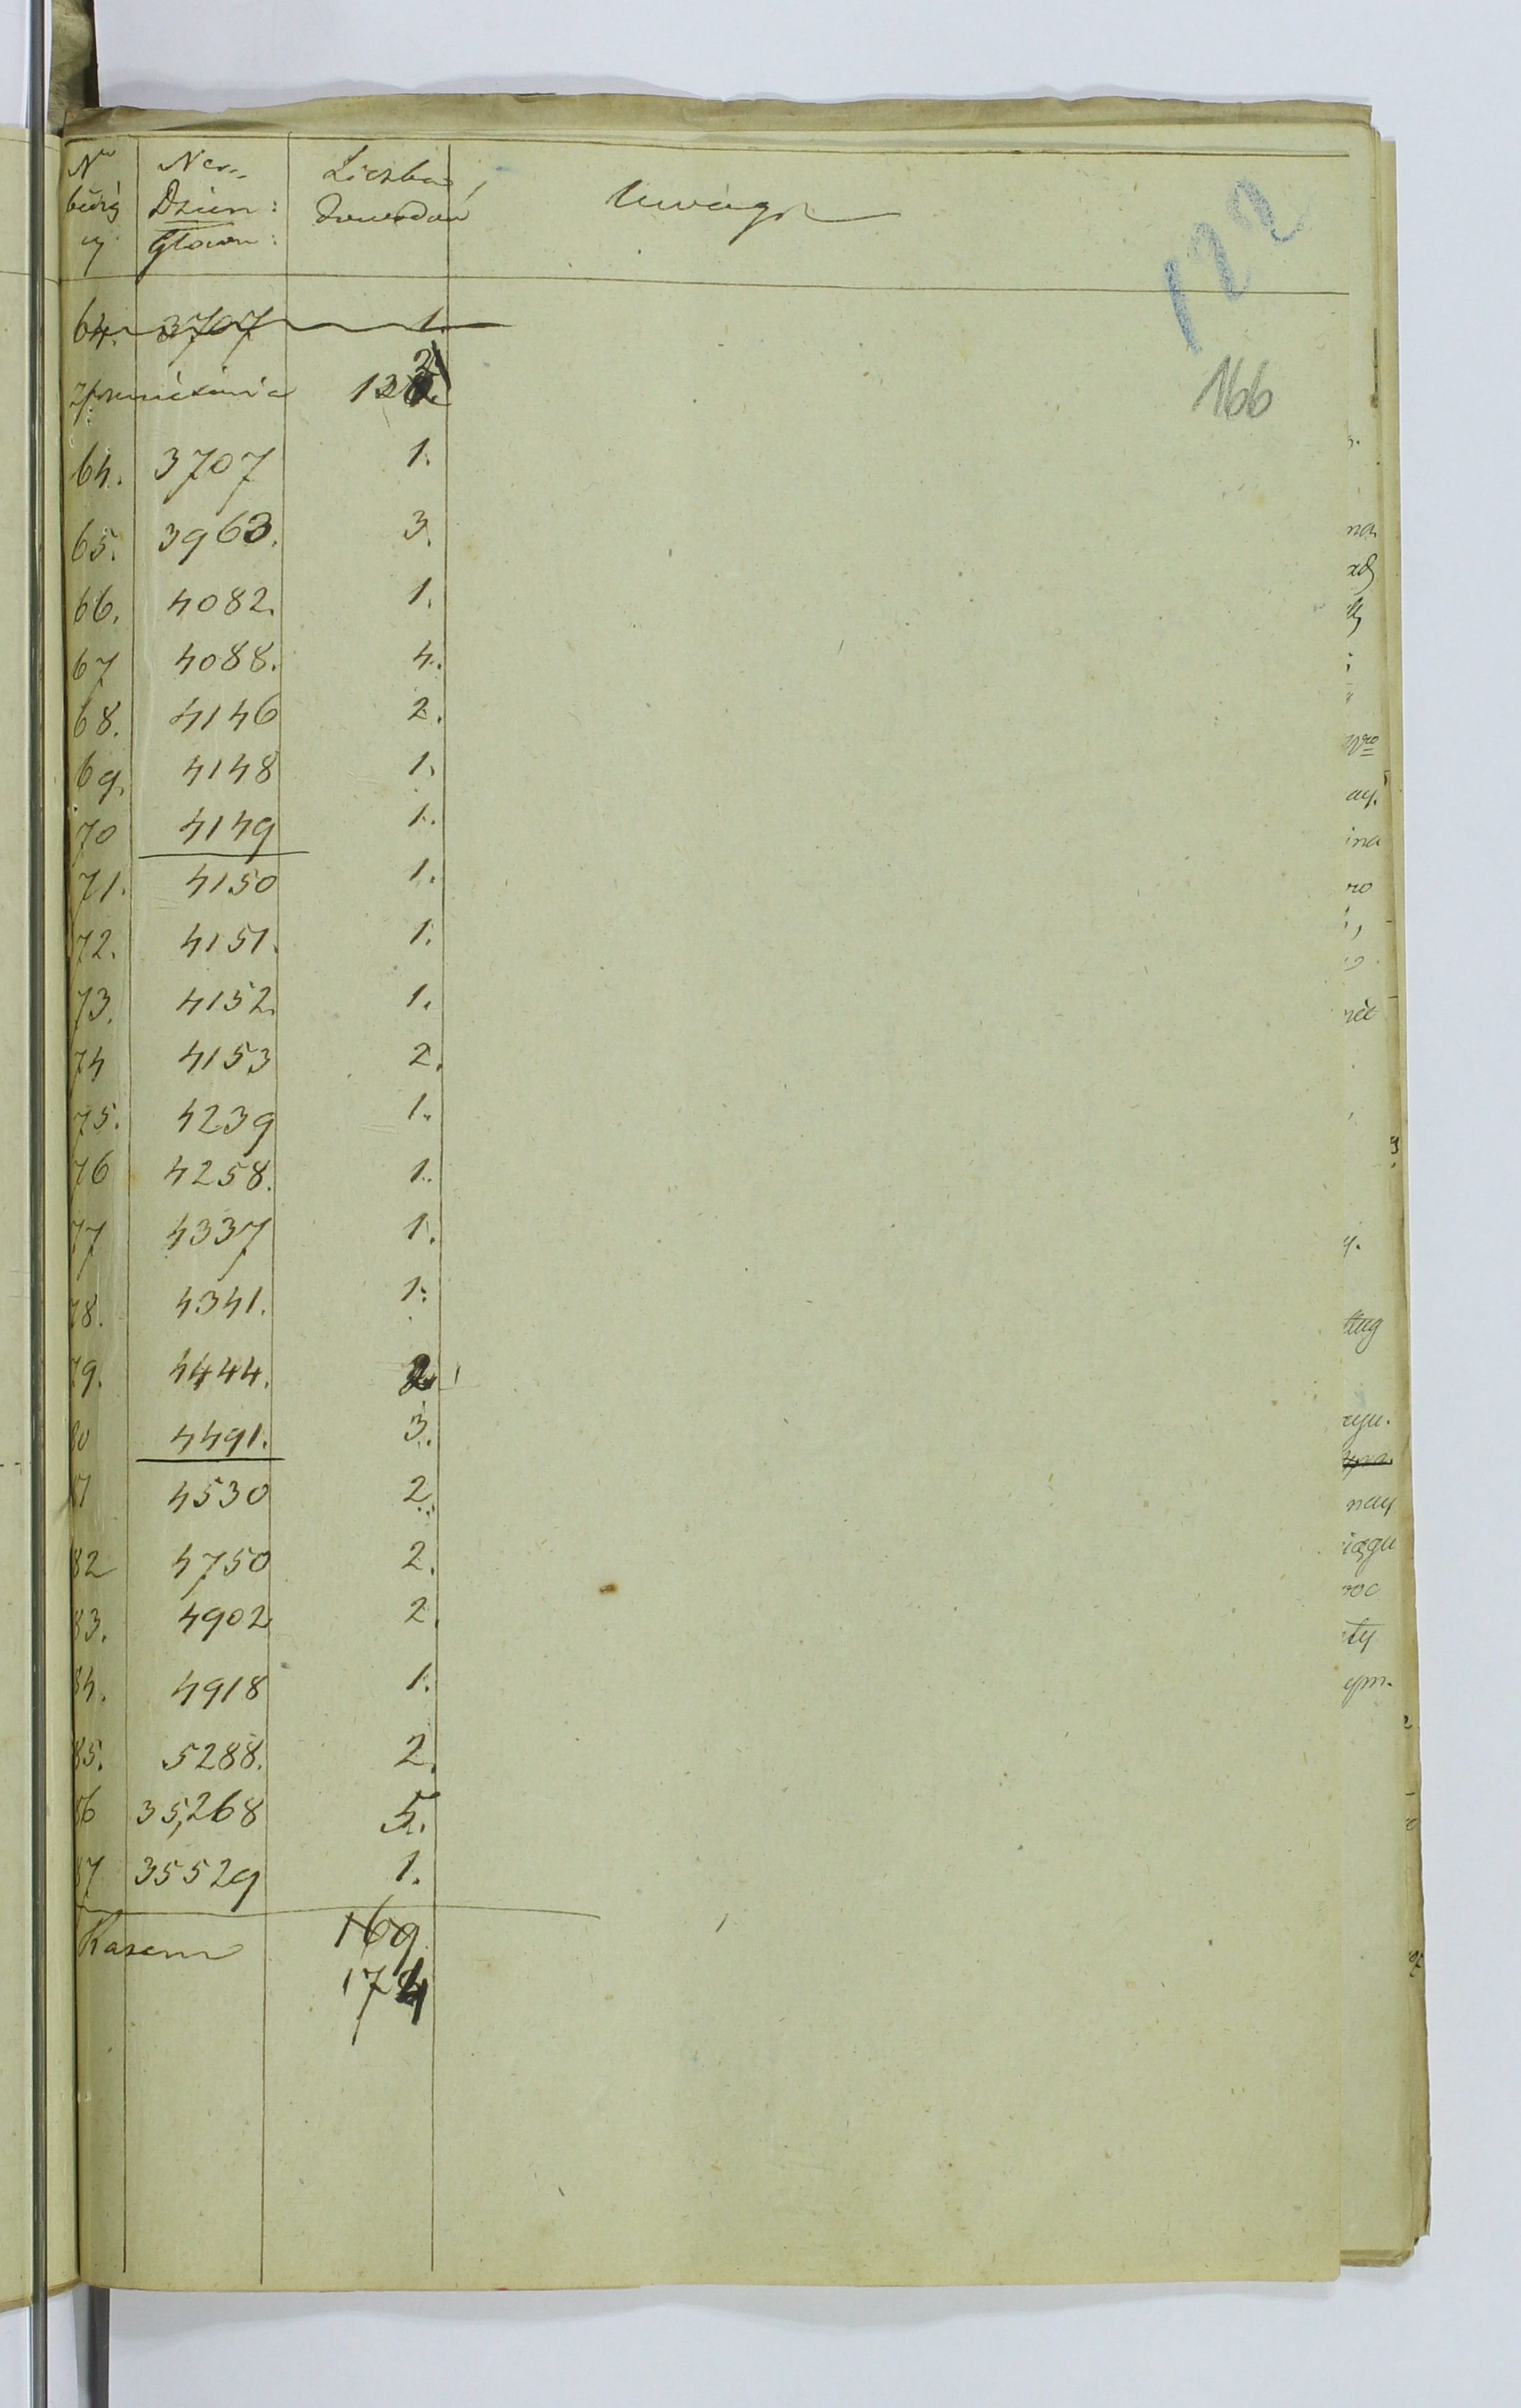 122
166
Nr Ner Liczba Uwagi
bieżą Dzien: dowodów
cy Głown:
64. 3707 1.
z przeniesienia 132
64. 3707 1.
65. 3963. 3.
66. 4082. 1.
67 4088. 4.
68. 4146 2.
69. 4148 1.
70 4149 1.
71. 4150 1.
72. 4151. 1.
73. 4152. 1.
74 4153 2.
75. 4239 1.
76 4258. 1.
77 4337 1.
78. 4341. 1.
79. 4444. 2
80 4491. 3.
81 4530 2.
82 4750 2.
83. 4902 2.
84. 4918 1.
85. 5288. 2.
86 35,268 5.
87 35529 1.
Razem 169
174